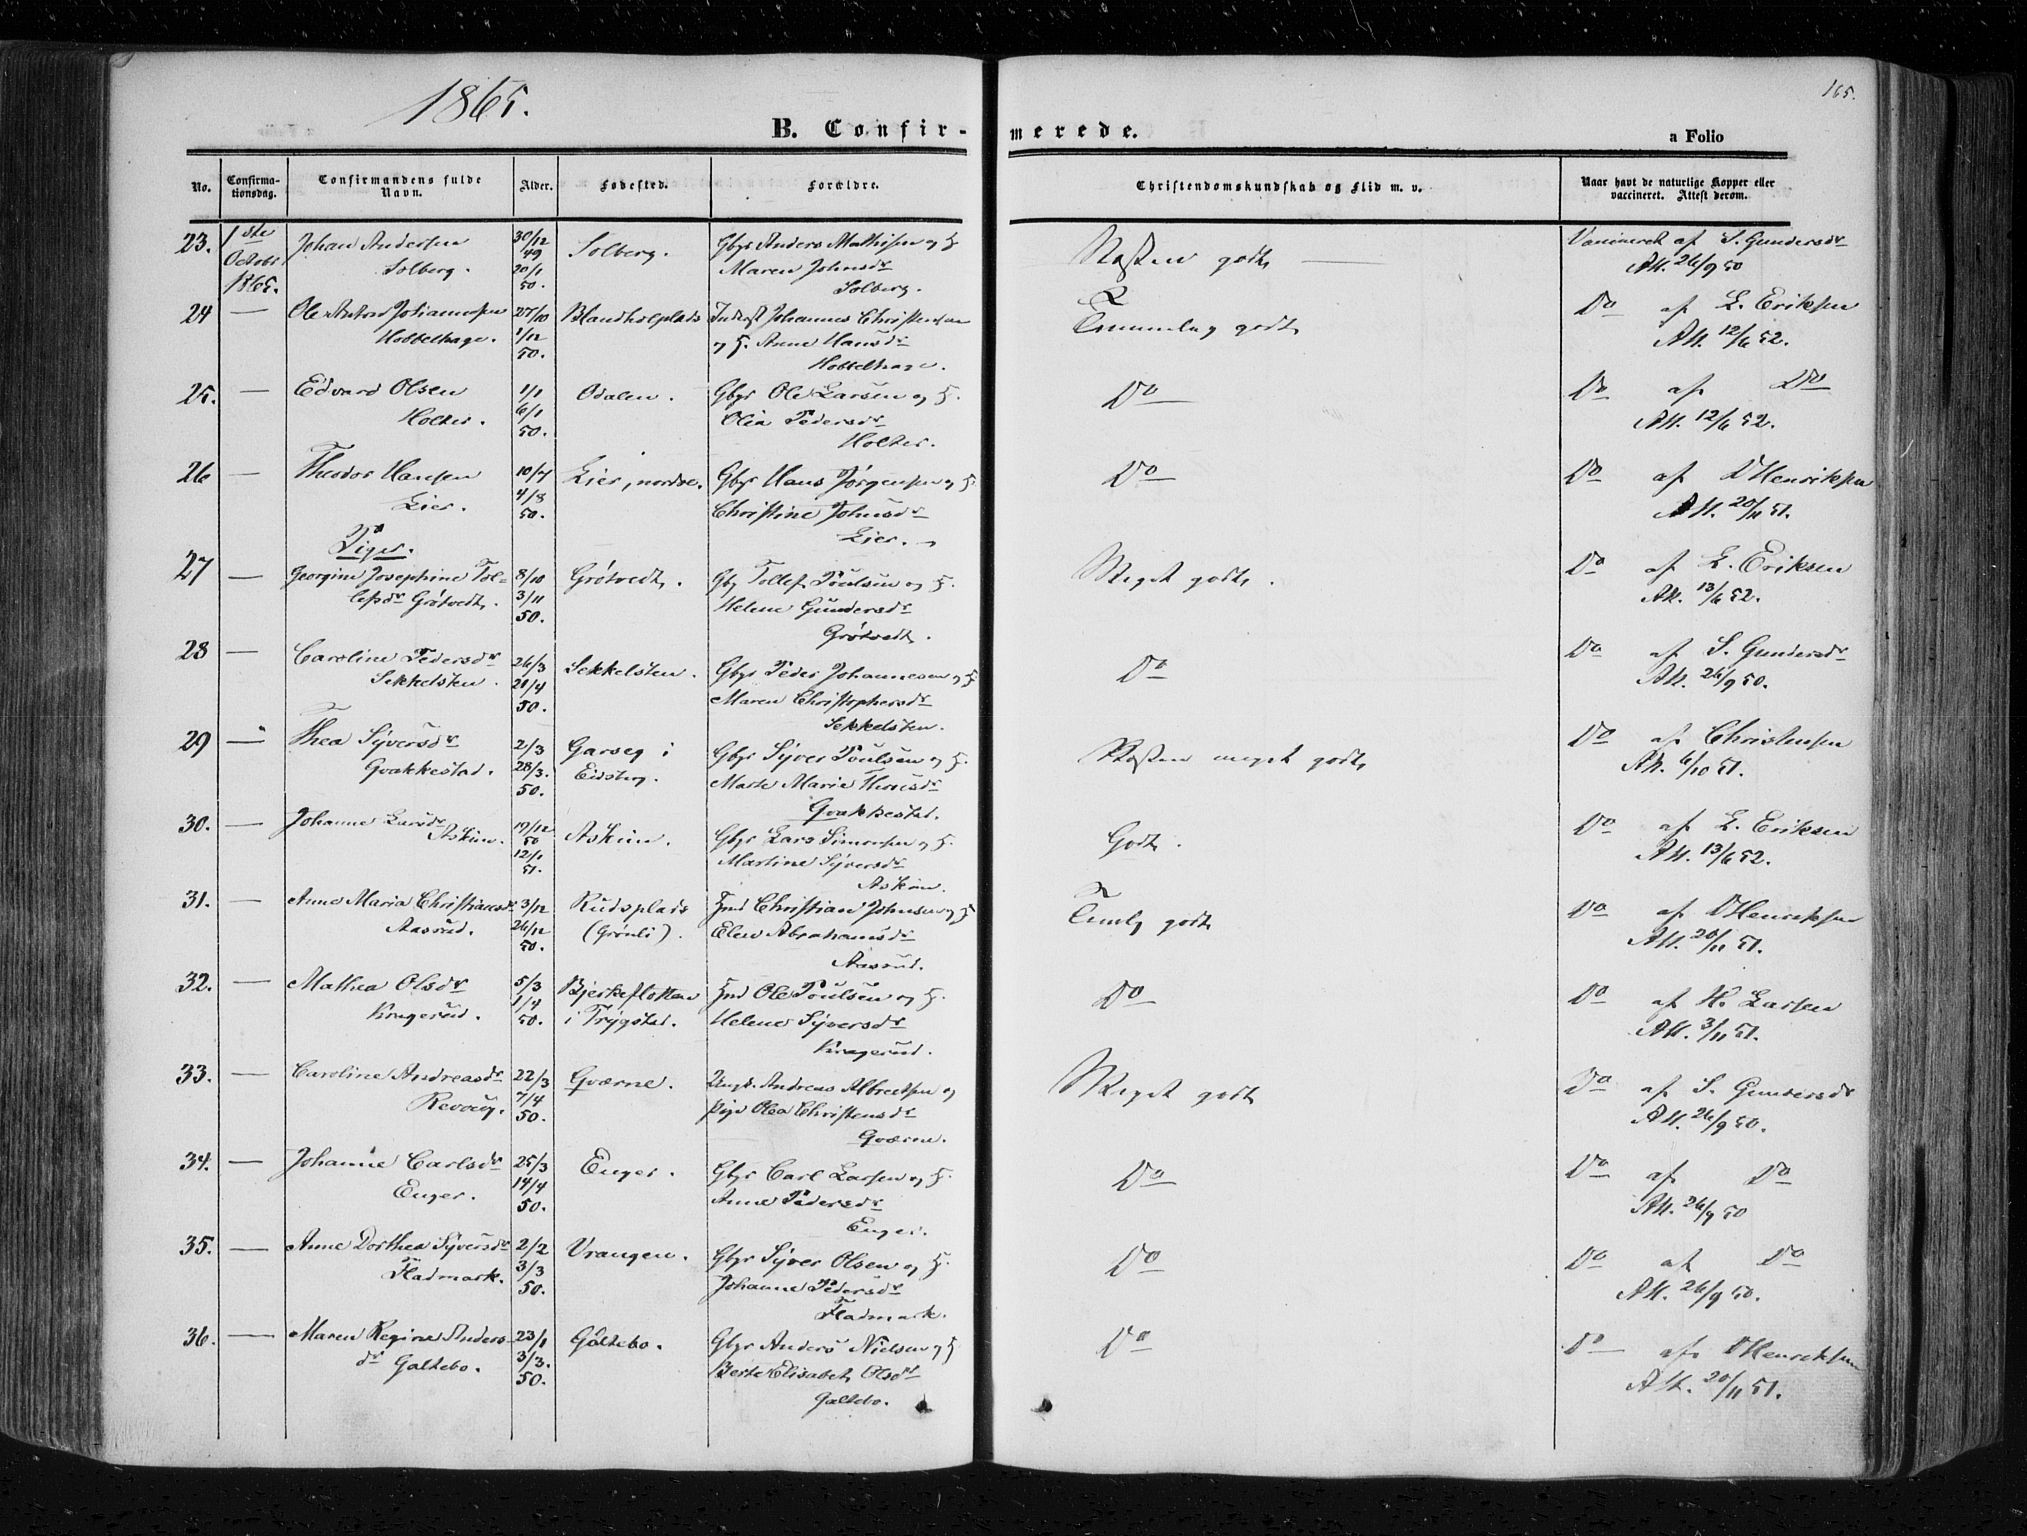 1865.
165.
B. Confirmerede.
a Folio
No.
Confirma-
tionsdag.
Confirmandens fulde
Navn.
Alder.
Fødested.
Forældre.
Christendomskundskab og Flid m. v.
Naar havt de naturlige Kopper eller
vaccineret. Attest derom.
23. 1ste Johan Andersen 30/12 Solberg. Gbr Anders Mathisen og H. Næsten godt — Vaccineret af S. Gundersdr
Octobr Solberg. 49 Maren Johnsdr Att. 26/9 50
1865. 20/1 50. Solberg.
24 — Ole Anton Johannesen 27/10 Inderst Johannes Christensen Temmelig godt Do af L. Eriksen
Hobbelhage. 1/12 og H. Anne Hansdr Att. 12/6 52.
50. Hobbelhage.
25. — Edvard Olsen 1/1 Odalen. Gbr Ole Larsen og H. Do Do af Do
Holter. 6/1 Olia Pedersdr Att. 12/6 52.
50. Holter.
26 — Theodor Hansen 10/7 Lier, nordre. Gbr Hans Jørgensen og H. Do Do af D Henriksen
Lier. 4/8 Christine Johnsdr Att. 20/11 51.
50. Lier.
Piger.
27 — Georgine Josephine Tol- 8/10 Grötvedt. Gbr Tollef Poulsen og H. Meget godt. Do af L. Eriksen
lefsdr Grötvedt. 3/11 Helene Gundersdr Att. 13/6 52.
50. Grøtvedt.
28 — Caroline Pedersdr 26/3 Sekkelsten. Gbr Peder Johannesen og H. Do Do af S. Gundersdr
Sekkelsten. 21/4 Maren Christophersdr Att. 26/9 50.
50. Sekkelsten.
29 — Thea Syversdr 2/3 Garseg i Gbr Syver Poulsen og H. Næsten meget godt Do af Christensen
Gvakkestad. 28/3. Eidsberg. Marte Marie Att. 6/10 51.
50. Gvakkestad.
30. — Johanne Larsdr 19/12 Askim. Gbr Lars Simensen og H. Godt. Do af L. Eriksen
Askim. 50 Martine Syversdr Att. 13/6 52.
12/1 51. Askim.
31. — Anne Maria Christiansdr 3/12 Rudsplads Ind Christian Johnsen og H. Temlg godt Do af D Henriksen
Aasrud. 26/12 (Grönli). Elen Abrahamsdr Att. 20/11 51.
50. Aasrud.
32. — Mathea Olsdr 5/3 Bjerkeflotten Ind Ole Poulsen og H. Do Do af H. Larsen
Kragerud. 1/4 i Trygstad. Helene Syversdr Att. 3/11 51.
50. Kragerud.
33. — Caroline Andreasdr 22/3 Gværne. Ungk. Andreas Albretsen og Meget godt Do af S. Gundersdr
Revoug. 7/4 Pige Olea Christensdr Att. 26/9 50.
50. Gværne.
34. — Johanne Carlsdr 25/3 Enger. Gbr Carl Larsen og H. Do Do af Do
Enger. 14/4 Anne Pedersdr Att. 26/9 50
50. Enger.
35. — Anne Dorthea Syversdr 2/2 Vrangen. Gbr Syver Olsen og H. Do Do af Do
Fladmark. 3/3 Johanne Pedersdr Att. 26/9 50.
50. Fladmark.
36. — Maren Regine Anders- 23/1 Galtebo. Gbr Anders Nielsen og H. Do Do af D Henriksen
dr Galtebo. 3/3. Berte Elisabet Olsdr Att. 20/11 51.
50. Galtebo.